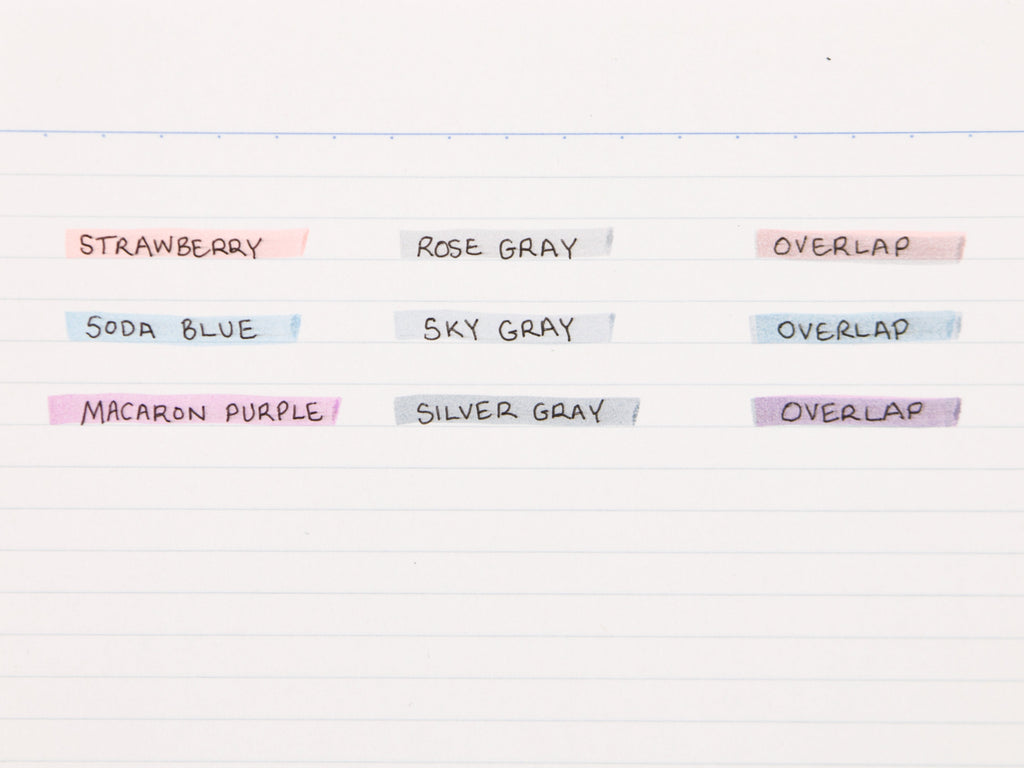 STRAWBERRY ROSE GRAY OVERLAP
SODA BLUE SKY GRAY OVERLAP
MACARON PURPLE SILVER GRAY OVERLAP